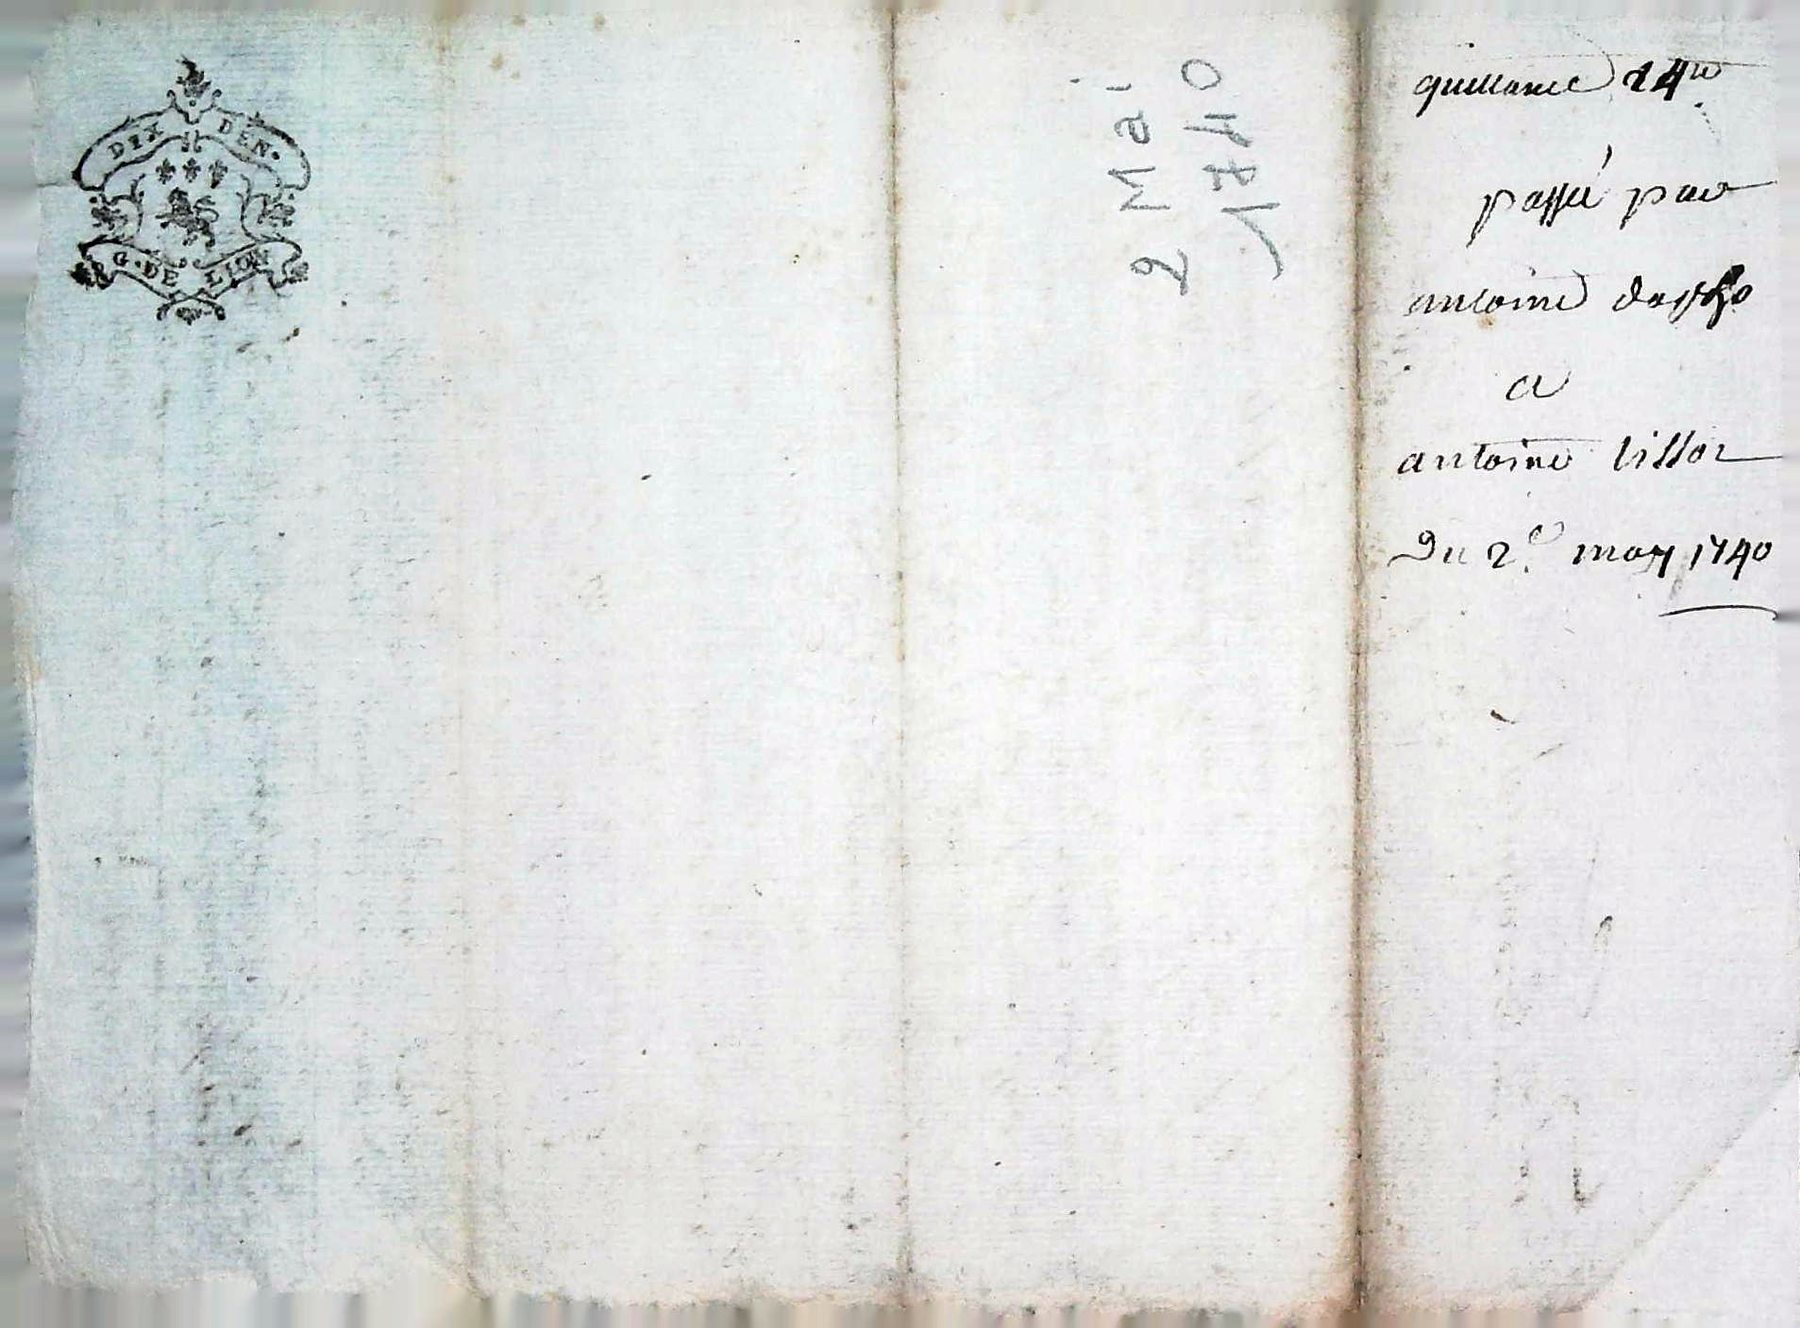 DIX DEN.
G. DE LION
2 Mai
1740
quittance 24ᵗᵗ
passé par
antoine
a
antoine tissot
Du 2ᵉ. may 1740